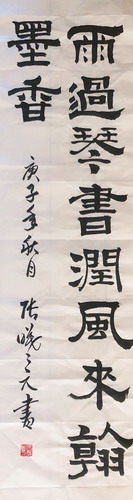 雨過琴書潤風來翰
墨香
庚子年秋月
張曦之元書